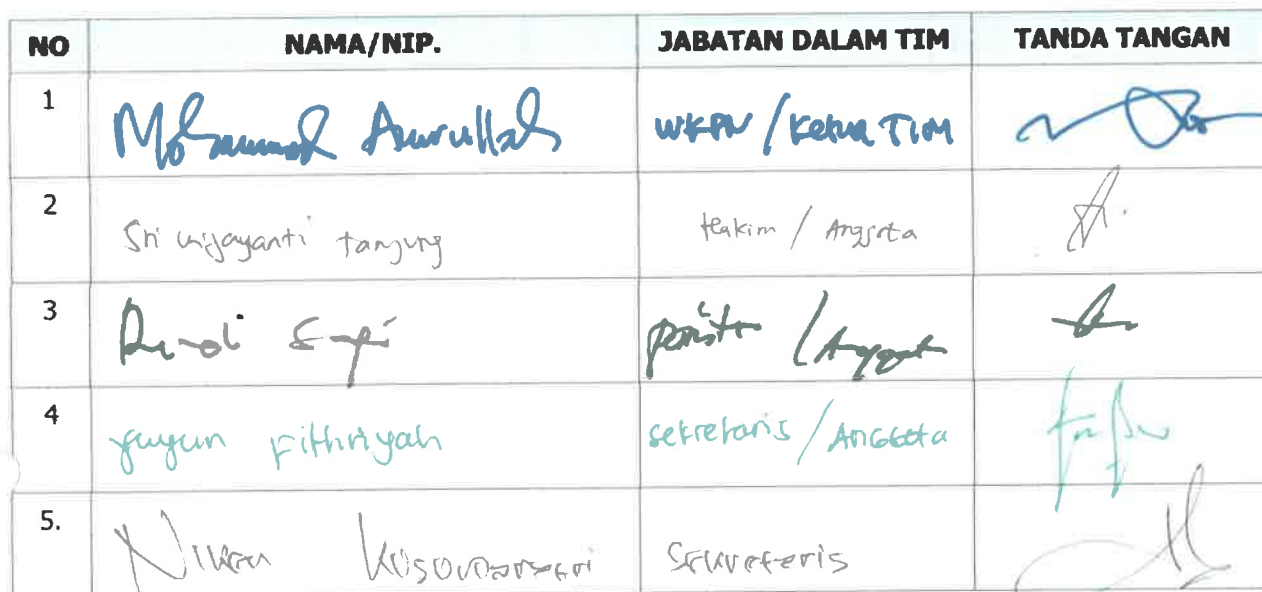 NO NAMA/NIP. JABATAN DALAM TIM TANDA TANGAN
1 Mohammad Amrullah WKPN / Ketua TIM
2 Sri Wijayanti tanjung Hakim / Anggota
3 panitera / Anggota
4 yuyun Fithriyah sekretaris / Anggota
5. Niken Sekretaris